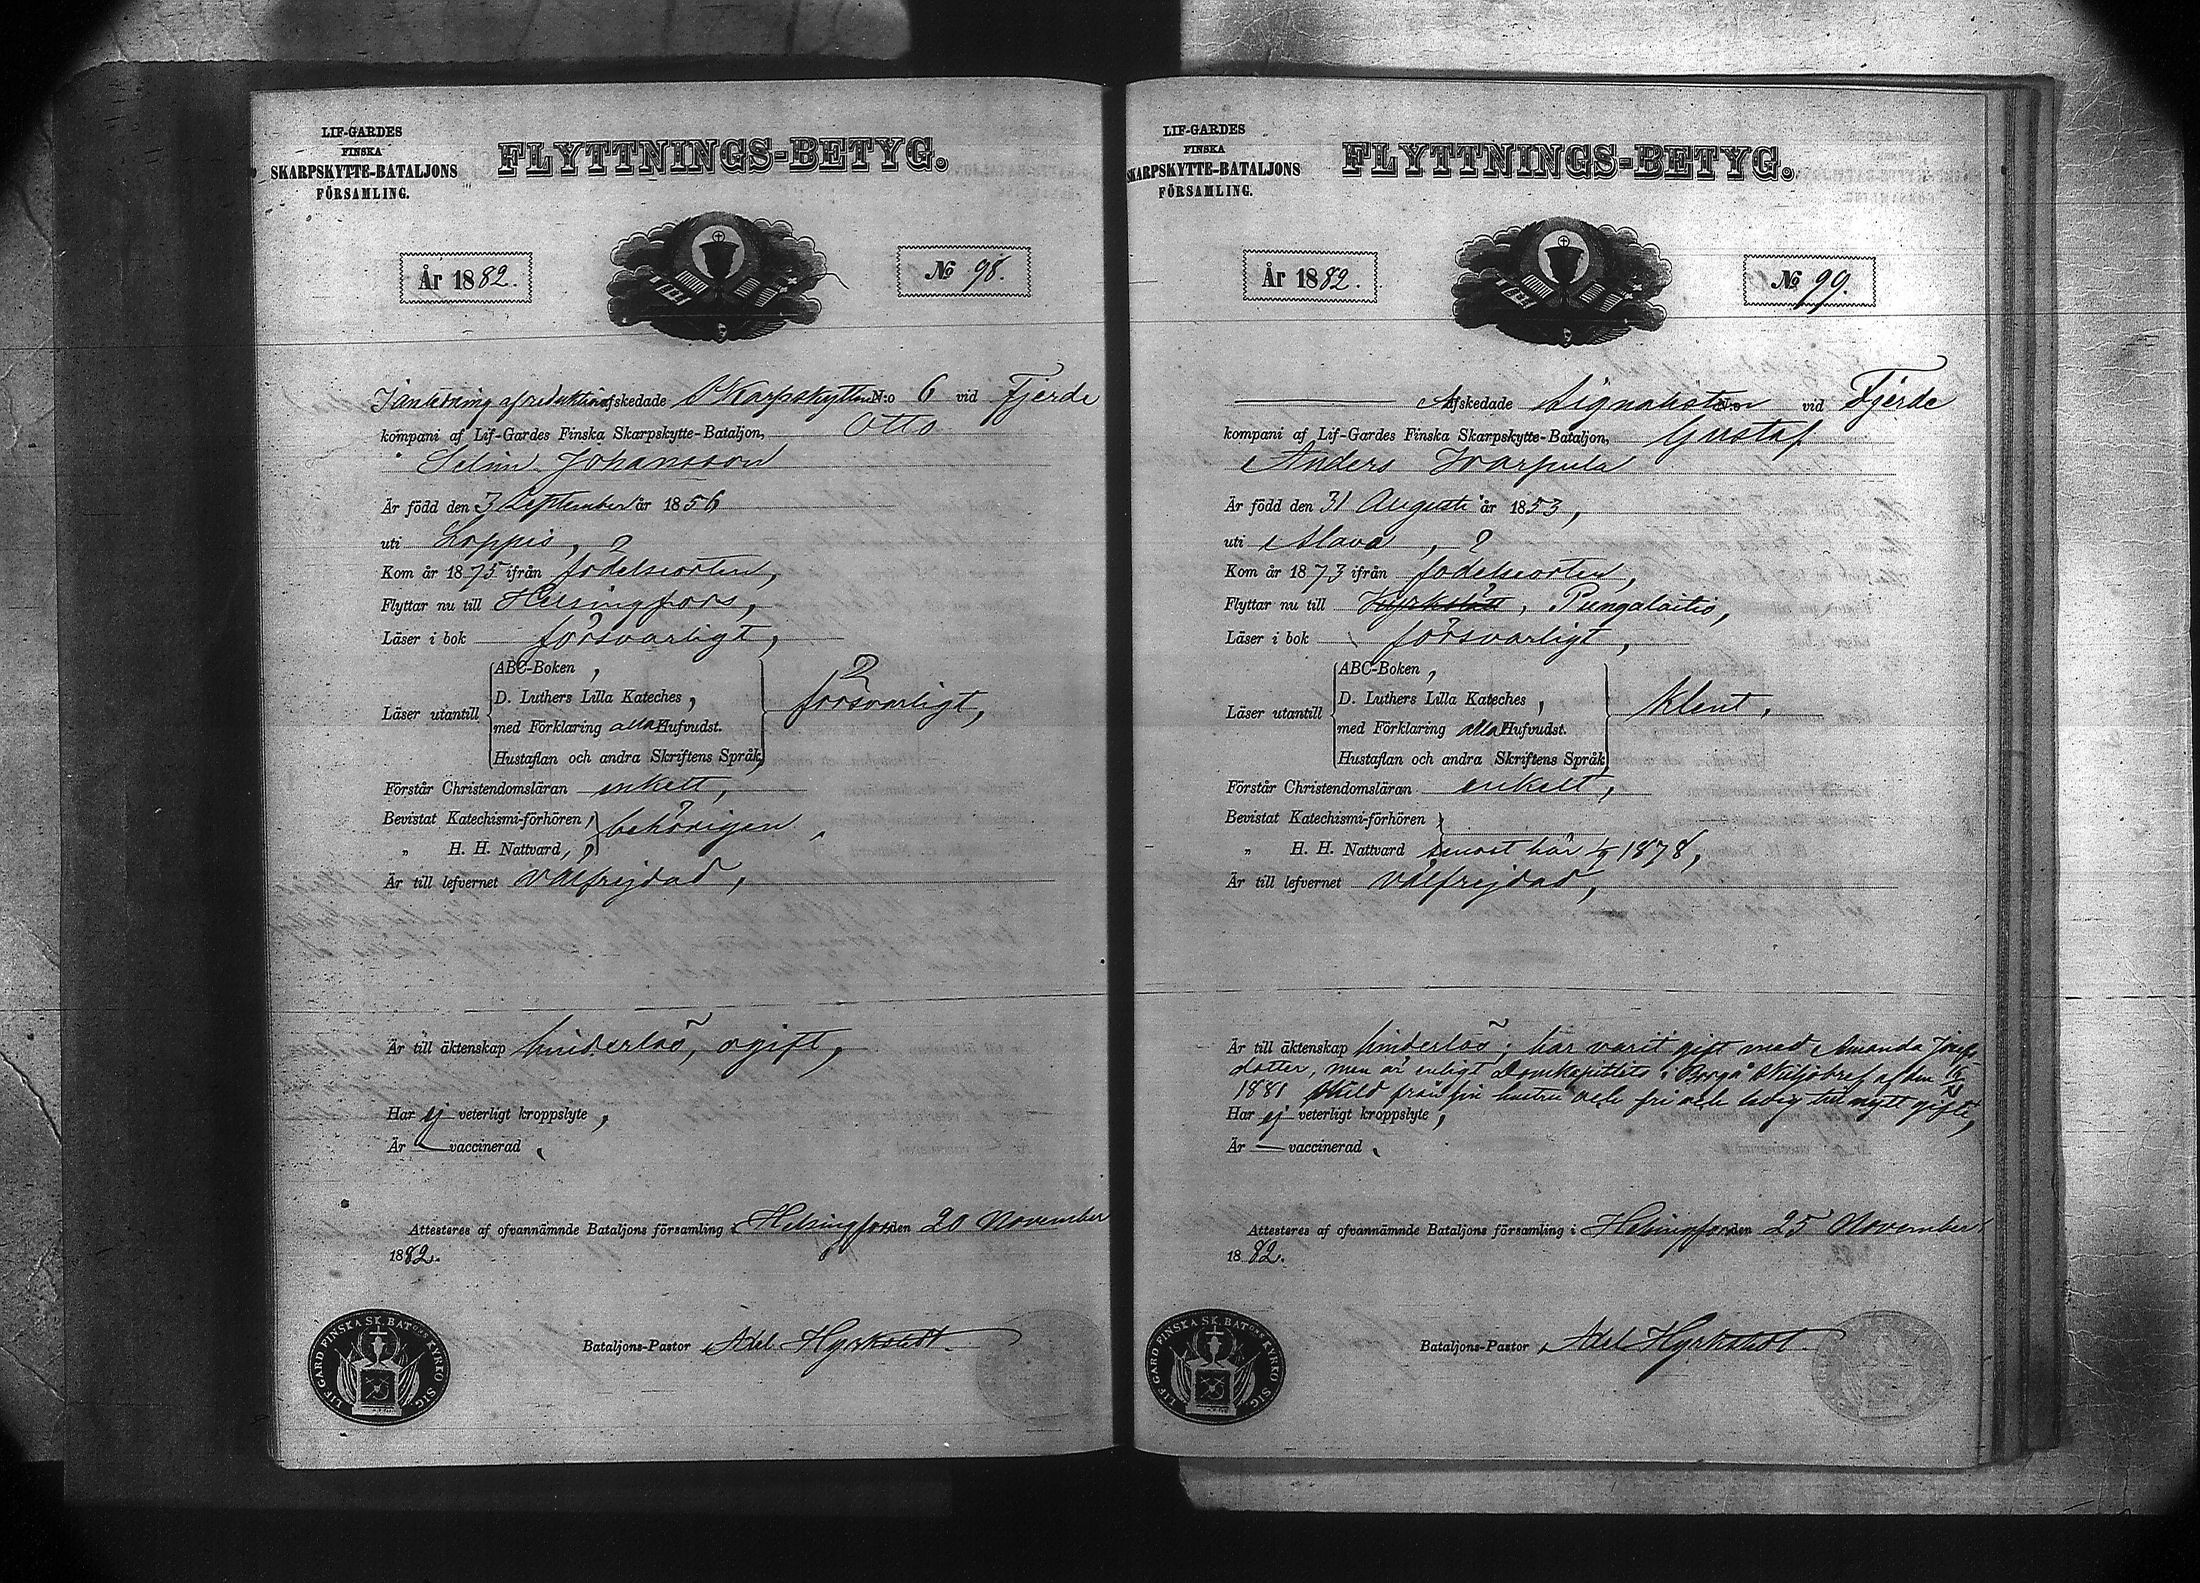 LIF-GARDES
FINSKA
SKARPSKYTTE-BATALJONS
FÖRSAMLING.
FLYTTNINGS-BETYG.
År 1882.
No 98.
afskedade Skarpskytten N:o 6 vid Fjerde
kompani af Lif-Gardes Finska Skarpskytte-Bataljon, Otto
Selim Johansson
Är född den 3 September år 1856
uti Loppis, ?
Kom år 1875 ifrån födelseorten,
Flyttar nu till Helsingfors,
Läser i bok försvarligt,
Läser utantill
ABC-Boken,
D. Luthers Lilla Kateches,
med Förklaring alla Hufvudst.
Hustaflan och andra Skriftens Språk,
försvarligt,
Förstår Christendomsläran enkelt,
Bevistat Katechismi-förhören,
„ H. H. Nattvard,
behörigen,
Är till lefvernet välfrejdad,
Är till äktenskap hinderlös, ogift,
Har ej veterligt kroppslyte,
Är — vaccinerad,
Attesteras af ofvannämnde Bataljons församling i Helsingfors den 20 November
1882.
Bataljons-Pastor Axel Hyrkstedt.
LIF GARD FINSKA SK. BAT:ONS KYRKO SIG.
LIF-GARDES
FINSKA
SKARPSKYTTE-BATALJONS
FÖRSAMLING.
FLYTTNINGS-BETYG.
År 1882.
No 99.
Afskedade Signalisten N:o vid Fjerde
kompani af Lif-Gardes Finska Skarpskytte-Bataljon, Gustaf
Anders Harpula
Är född den 31 Augusti år 1853,
uti Alavo, ?
Kom år 1873 ifrån födelseorten,
Flyttar nu till Kyrkslätt, Pungalaitio,
Läser i bok försvarligt,
Läser utantill
ABC-Boken,
D. Luthers Lilla Kateches,
med Förklaring alla Hufvudst.
Hustaflan och andra Skriftens Språk
klent,
Förstår Christendomsläran enkelt,
Bevistat Katechismi-förhören
„ H. H. Nattvard senast här 1878,
Är till lefvernet välfrejdad,
Är till äktenskap hinderlös; har varit gift med Amanda Josefs-
dotter, men är enligt Domkapitlets i Borgå Skiljobref af den
1881 skild från sin hustru och fri och ledig till nytt gifte,
Har ej veterligt kroppslyte,
Är — vaccinerad,
Attesteras af ofvannämnde Bataljons församling i Helsingfors den 25 November
1882.
Bataljons-Pastor Axel Hyrkstedt.
LIF GARD FINSKA SK. BAT:ONS KYRKO SIG.